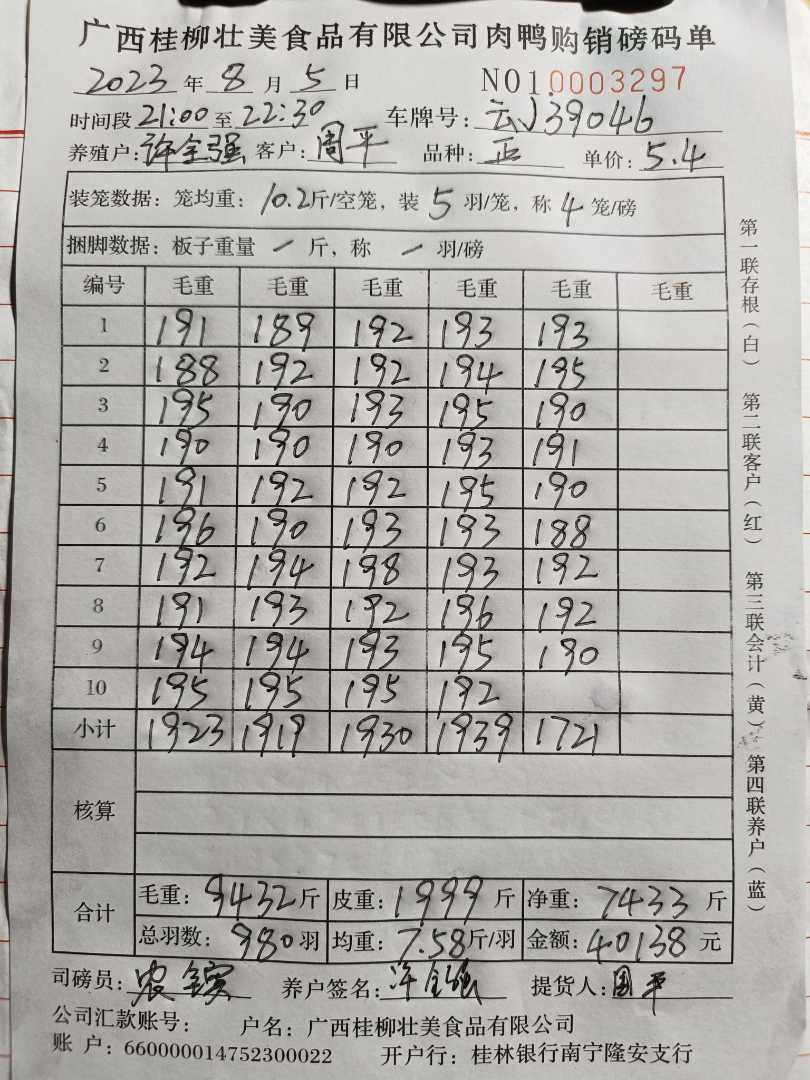 广西桂柳壮美食品有限公司肉鸭购销磅码单
2023 年 8 月 5 日 NO10003297
时间段 21:00 至 22:30 车牌号: 云J39046
养殖户: 许全强 客户: 周平 品种: 正 单价: 5.4
装笼数据: 笼均重: 10.2斤/空笼, 装 5 羽/笼, 称 4 笼/磅
捆脚数据: 板子重量 / 斤, 称 / 羽/磅
编号 毛重 毛重 毛重 毛重 毛重 毛重
1 191 189 192 193 193
2 188 192 192 194 195
3 195 190 193 195 190
4 190 190 190 193 191
5 191 192 192 195 190
6 196 190 193 193 188
7 192 194 198 193 192
8 191 193 192 196 192
9 194 194 193 195 190
10 195 195 195 192
小计 1923 1919 1930 1939 1721
核算
合计 毛重: 9432 斤 皮重: 1999 斤 净重: 7433 斤
总羽数: 980 羽 均重: 7.58 斤/羽 金额: 40138 元
司磅员: 农 养户签名: 许全强 提货人: 周平
公司汇款账号: 户名: 广西桂柳壮美食品有限公司
账 户: 660000014752300022 开户行: 桂林银行南宁隆安支行
第一联存根(白) 第二联客户(红) 第三联会计(黄) 第四联养户(蓝)